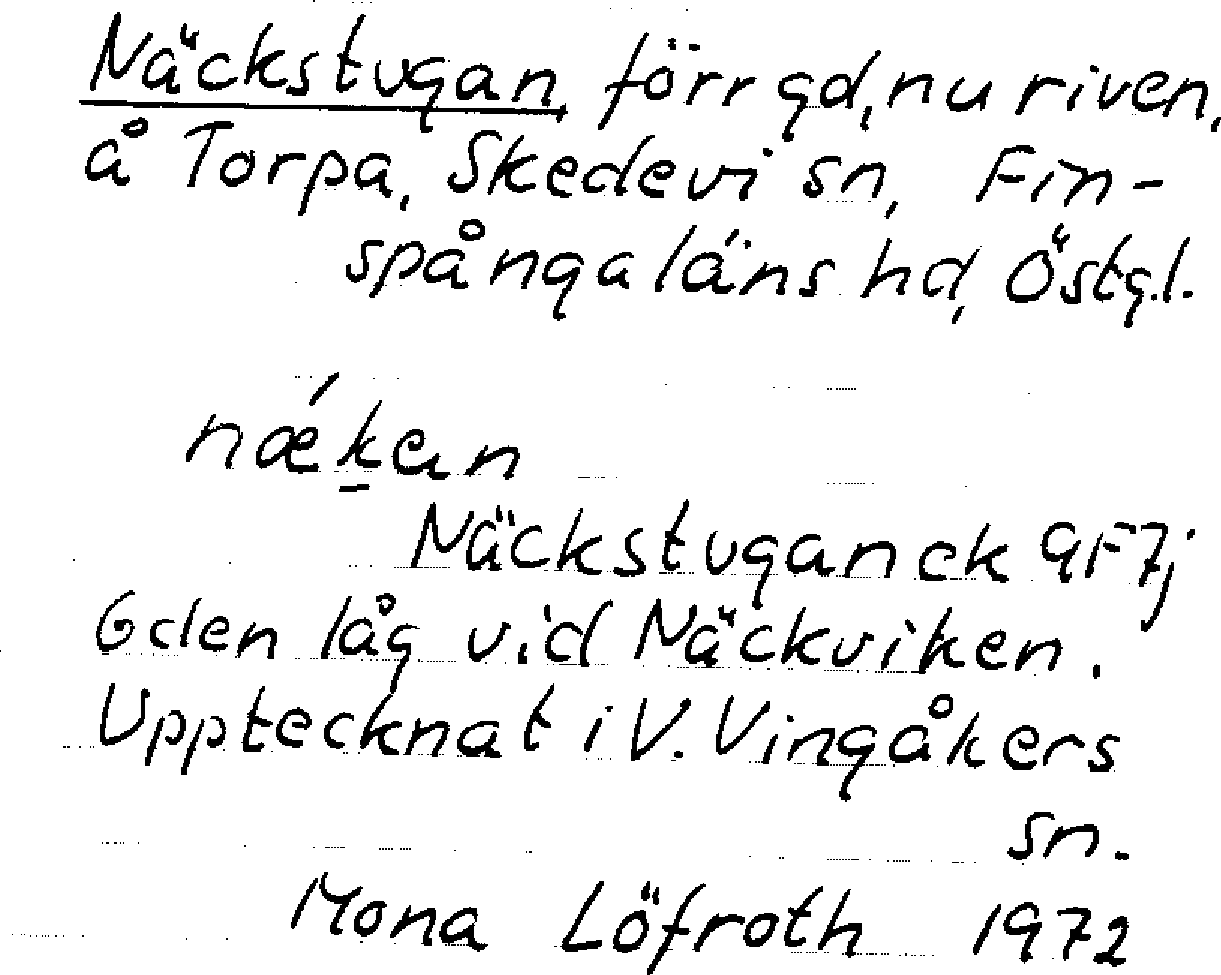 Näckstugan, förr gd, nu riven,
å Torpa, Skedevi sn, Fin-
spånga läns hd, Östg.l.
Näckstugan ek 9F7j
Gden låg vid Näckviken.
Upptecknat i V. Vingåkers
sn.
Mona Löfroth 1972